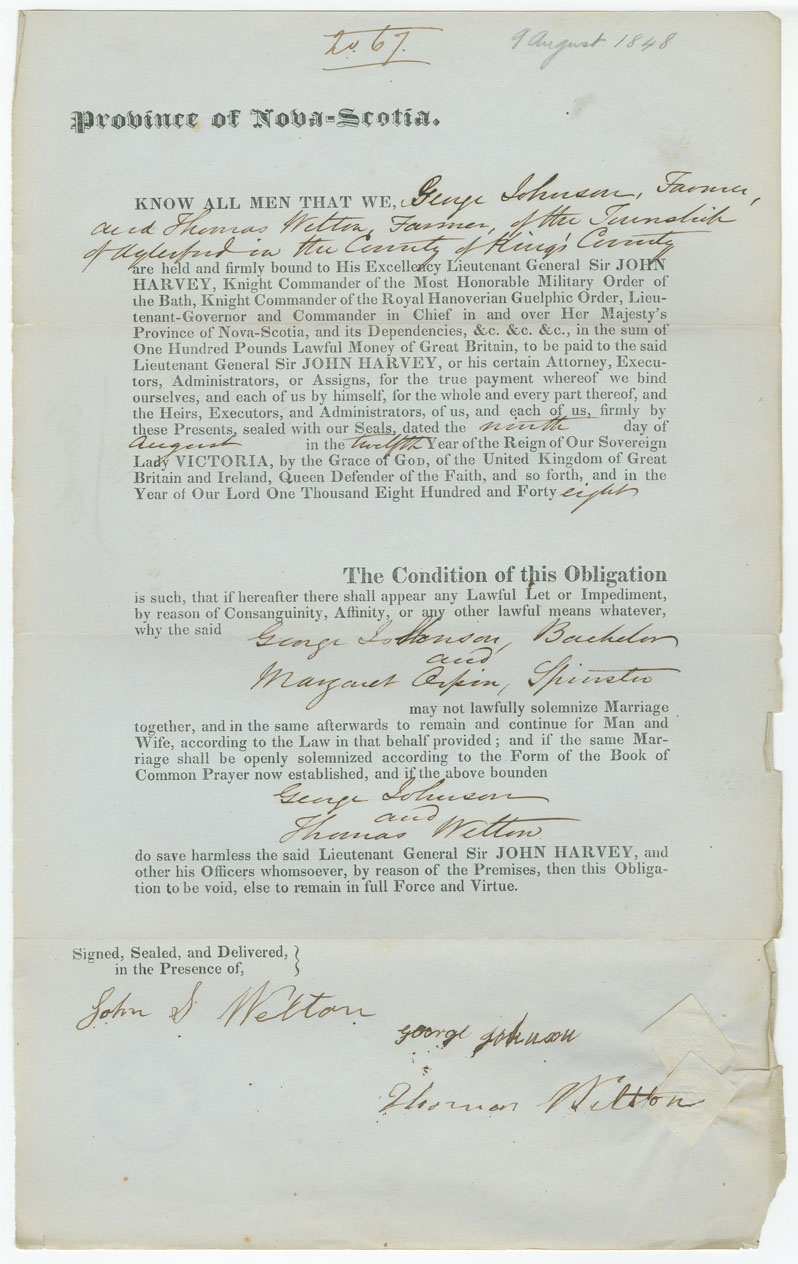 No. 67.
9 August 1848
Province of Nova-Scotia.
KNOW ALL MEN THAT WE, George Johnson, Farmer,
and Thomas Welton, Farmer, of the Township
of Aylesford in the County of King's County
are held and firmly bound to His Excellency Lieutenant General Sir JOHN
HARVEY, Knight Commander of the Most Honorable Military Order of
the Bath, Knight Commander of the Royal Hanoverian Guelphic Order, Lieu-
tenant-Governor and Commander in Chief in and over Her Majesty's
Province of Nova-Scotia, and its Dependencies, &c. &c. &c., in the sum of
One Hundred Pounds Lawful Money of Great Britain, to be paid to the said
Lieutenant General Sir JOHN HARVEY, or his certain Attorney, Execu-
tors, Administrators, or Assigns, for the true payment whereof we bind
ourselves, and each of us by himself, for the whole and every part thereof, and
the Heirs, Executors, and Administrators, of us, and each of us, firmly by
these Presents, sealed with our Seals, dated the ninth day of
August in the twelfth Year of the Reign of Our Sovereign
Lady VICTORIA, by the Grace of GOD, of the United Kingdom of Great
Britain and Ireland, Queen Defender of the Faith, and so forth, and in the
Year of Our Lord One Thousand Eight Hundred and Forty eight
The Condition of this Obligation
is such, that if hereafter there shall appear any Lawful Let or Impediment,
by reason of Consanguinity, Affinity, or any other lawful means whatever,
why the said George Johnson, Bachelor
and
Margaret Orpin, Spinster
may not lawfully solemnize Marriage
together, and in the same afterwards to remain and continue for Man and
Wife, according to the Law in that behalf provided; and if the same Mar-
riage shall be openly solemnized according to the Form of the Book of
Common Prayer now established, and if the above bounden
George Johnson
and
Thomas Welton
do save harmless the said Lieutenant General Sir JOHN HARVEY, and
other his Officers whomsoever, by reason of the Premises, then this Obliga-
tion to be void, else to remain in full Force and Virtue.
Signed, Sealed, and Delivered,
in the Presence of,
John S Welton
george johnson
Thomas Welton